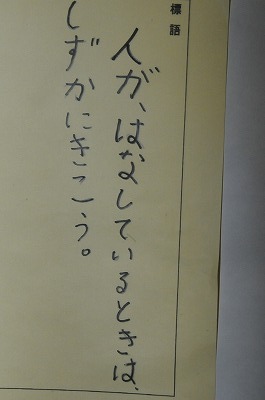 標語
人が、はなしているときは、
しずかにきこう。